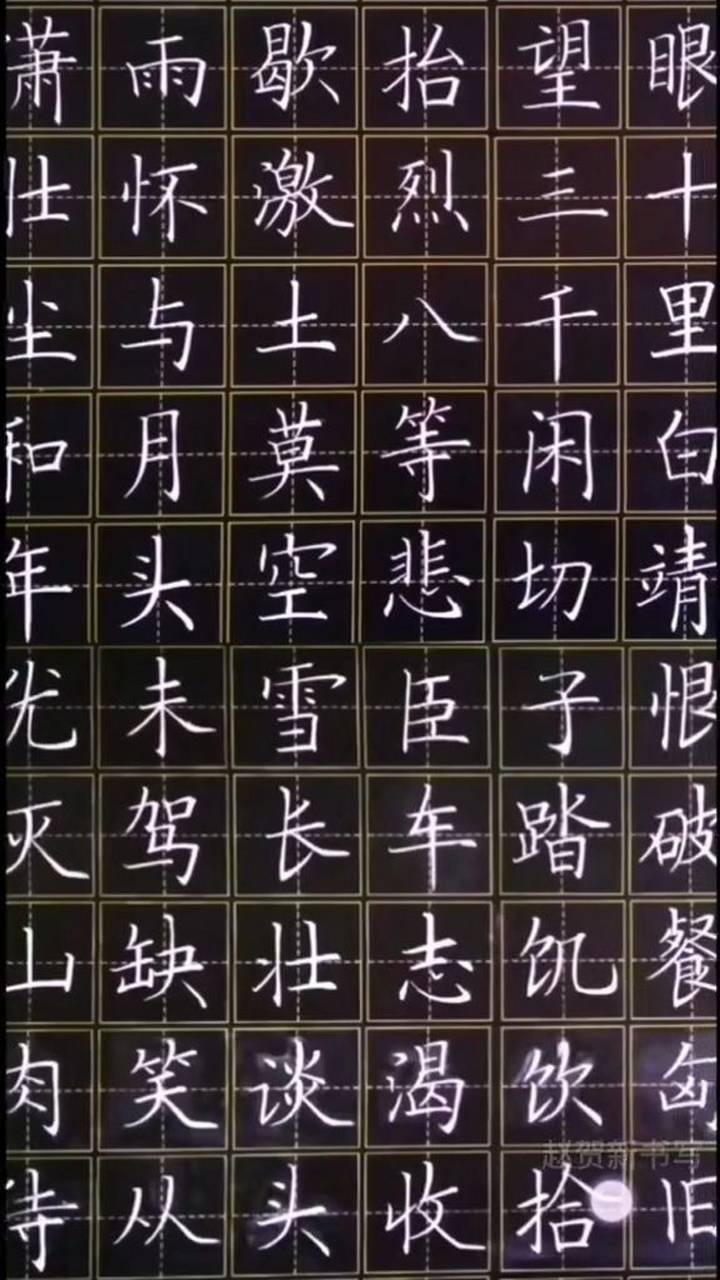 潇雨歇抬望眼
壮怀激烈三十
尘与土八千里
和月莫等闲白
年头空悲切靖
犹未雪臣子恨
灭驾长车踏破
山缺壮志饥餐
肉笑谈渴饮匈
待从头收拾旧
赵贺新书写